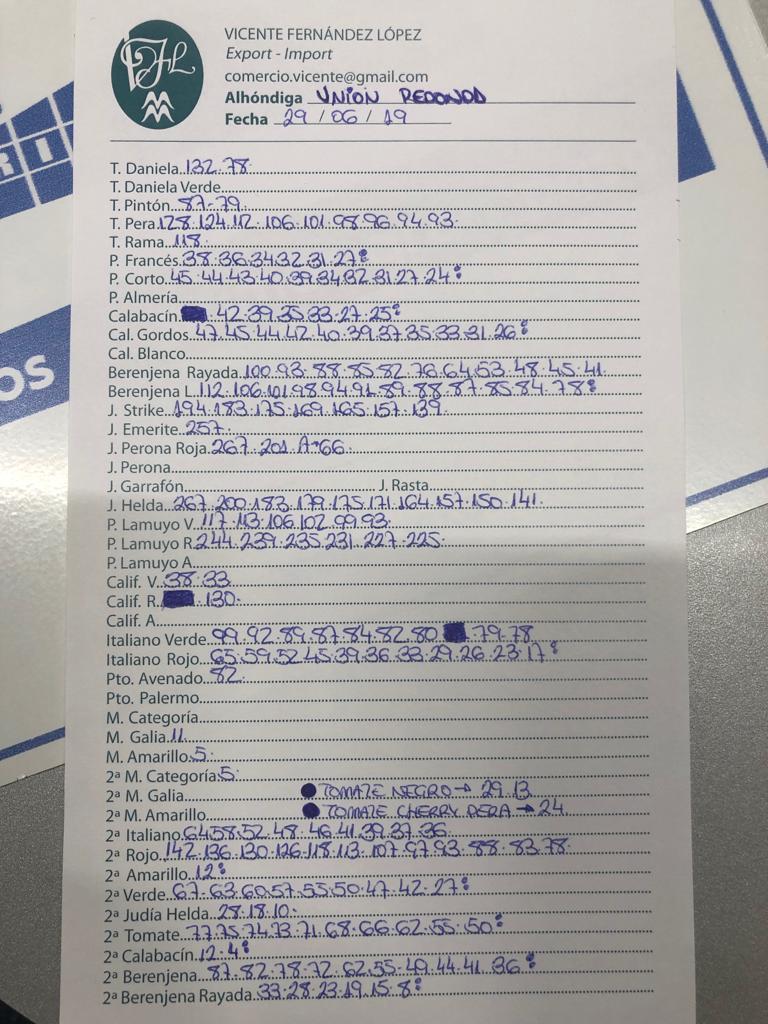 VICENTE FERNÁNDEZ LÓPEZ
Export - Import
comercio.vicente@gmail.com
Alhóndiga UNION REDONDA
Fecha 29 / 06 / 19
T. Daniela 132.78.
T. Daniela Verde
T. Pintón 87-79.
T. Pera 128.124.112.106.101.98.96.94.93.
T. Rama 118.
P. Francés 38.36.34.32.31.27.
P. Corto 45.44.43.40.39.34.32.31.27.24.
P. Almería
Calabacín 42.39.35.33.27.25.
Cal. Gordos 47.45.44.42.40.39.37.35.33.31.26.
Cal. Blanco
Berenjena Rayada 100.93.88.85.82.76.64.53.48.45.41.
Berenjena L. 112.106.101.98.94.91.89.88.87.85.84.78.
J. Strike 194.183.175.169.165.157.139.
J. Emerite 257.
J. Perona Roja 267.201.A→66.
J. Perona
J. Garrafón J. Rasta
J. Helda 267.200.183.179.175.171.164.157.150.141.
P. Lamuyo V. 117.113.106.102.99.93.
P. Lamuyo R. 244.239.235.231.227.225.
P. Lamuyo A.
Calif. V. 38.33.
Calif. R. 130.
Calif. A.
Italiano Verde 99.92.89.87.84.82.80 79.78.
Italiano Rojo 65.59.52.45.39.36.33.29.26.23.17.
Pto. Avenado 82.
Pto. Palermo
M. Categoría
M. Galia 11.
M. Amarillo 5.
2ª M. Categoría 5.
2ª M. Galia TOMATE NEGRO → 29.13.
2ª M. Amarillo TOMATE CHERRY PERA → 24.
2ª Italiano 64.58.52.48.46.41.39.37.36.
2ª Rojo 142.136.130.126.118.113.107.97.93.88.83.78.
2ª Amarillo 12.
2ª Verde 67.63.60.57.55.50.47.42.27.
2ª Judía Helda 28.18.10.
2ª Tomate 77.75.74.73.71.68.66.62.55.50.
2ª Calabacín 12.4.
2ª Berenjena 87.82.78.72.62.55.49.44.41.36.
2ª Berenjena Rayada 33.28.23.19.15.8.